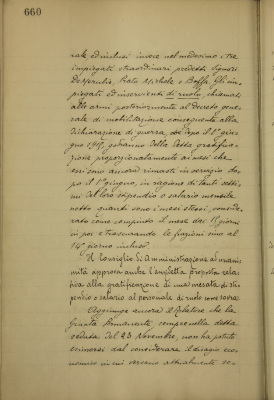 660
rale ed inclusi invece nel medesimo i tre
impiegati straordinari predetti signori
De Prato Michele e Boffa. Gli im-
piegati ed inservienti di ruolo, chiamati
alle armi posteriormente al decreto gene-
rale di mobilitazione conseguente alla
dichiarazione di guerra, e dopo il 1° giu-
gno 1915, godranno della detta gratifica-
zione proporzionalmente ai mesi che
essi sono ancora rimasti in servizio do-
po il 1° giugno, in ragione di tanti
mi del loro stipendio o salario mensile
netto quanti sono i mesi stessi, conside-
rato come compiuto il mese dai 15 giorni
in poi e trascurando le frazioni sino al
14° giorno incluso.
Il Consiglio di Amministrazione ad unani-
mità approva anche l'anzidetta proposta rela-
tiva alla gratificazione di una mesata di sti-
pendio o salario al personale di ruolo
Aggiunge ancora il Relatore che la
Giunta Permanente compresa della detta
seduta del 23 Novembre, non ha potuto
esimersi dal considerare il disagio eco-
nomico in cui versano attualmente